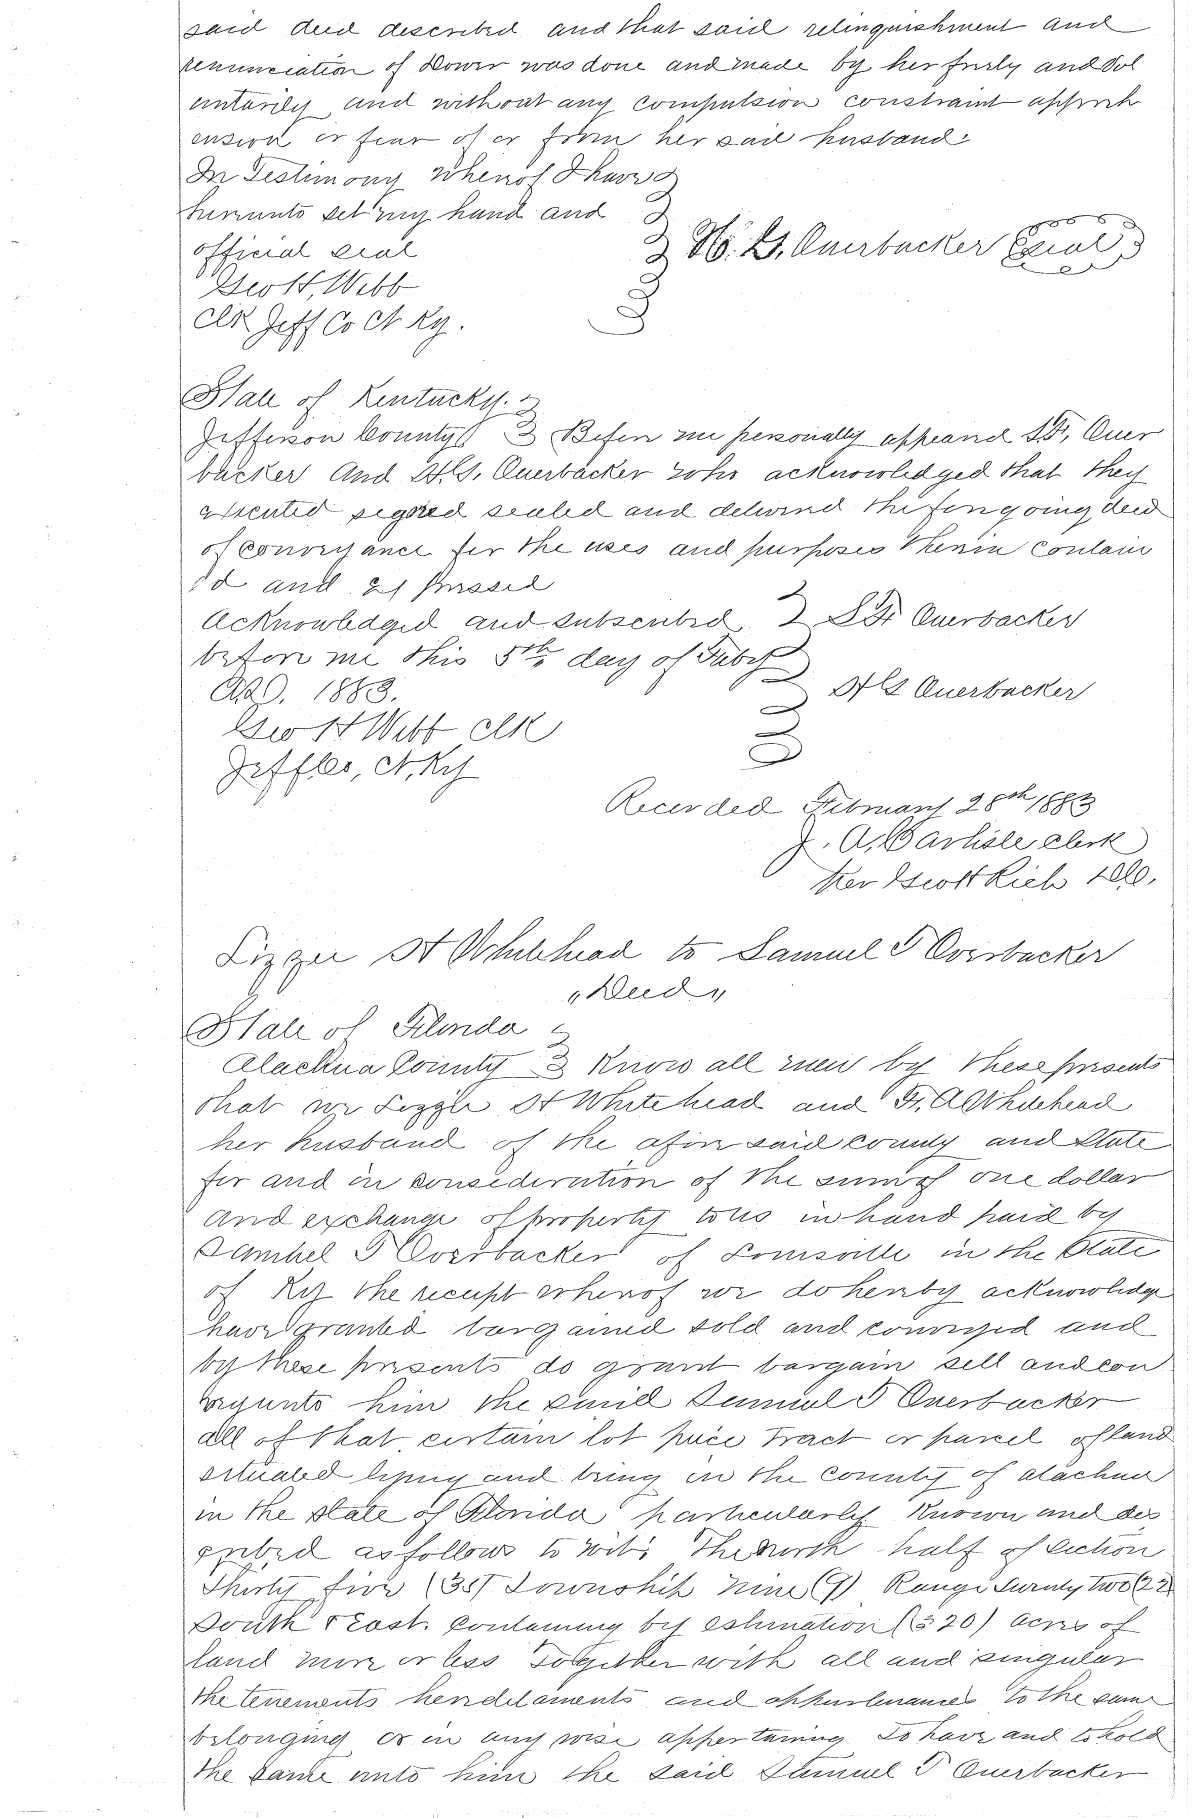 said deed described and that said relinquishment and
renunciation of Dower was done and made by her freely and Vol
untarily and without any compulsion constraint appreh
ension or fear of or from her said husband
In Testimony whereof I have
hereunto set my hand and
official seal
H. G. Overbacker Seal
Geo H. Webb
Clk Jeff Co Ct Ky.
State of Kentucky.
Jefferson County Before me personally appeared S.T. Over
backer And H.G. Overbacker who acknowledged that they
executed signed sealed and delivered the foregoing deed
of conveyance for the uses and purposes therein contain
ed and expressed
Acknowledged and subscribed S T Overbacker
before me this 5th day of Feby
A.D. 1883. H G Overbacker
Geo H Webb clk
Jeff Co, Ct, Ky
Recorded February 28th 1883
J. A. Carlisle clerk
Per Scott Rich D.C.
Lizzie H Whitehead to Samuel T Overbacker
"Deed"
State of Florida
Alachua County Know all men by these presents
that we Lizzie H Whitehead and F. A Whitehead
her husband of the afore said county and State
for and in consideration of the sum of one dollar
and exchange of property to us in hand paid by
Samuel T Overbacker of Louisville in the State
of Ky the receipt whereof we do hereby acknowledge
have granted bargained sold and conveyed and
by these presents do grant bargain sell and con
vey unto him the said Samuel T Overbacker
all of that certain lot piece tract or parcel of land
situated lying and being in the county of Alachua
in the state of Florida particularly known and des
cribed as follows to wit: The North half of Section
Thirty five (35) Township nine (9) Range Twenty two (22)
South & East. Containing by estimation (320) acres of
land more or less Together with all and singular
the tenements hereditaments and appurtenances to the same
belonging or in any wise appertaining To have and to hold
the same unto him the said Samuel T Overbacker